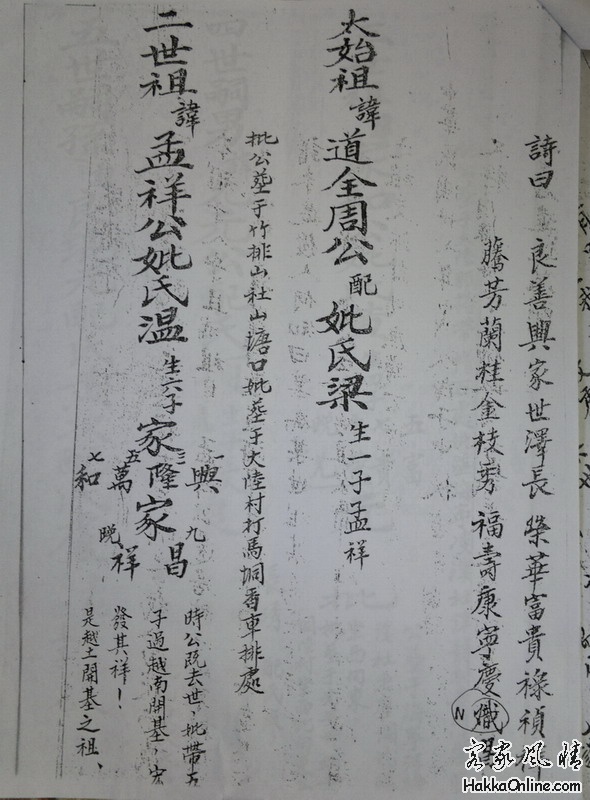 詩曰
良善興家世澤長 榮華富貴祿禎祥
騰芳蘭桂金枝秀 福壽康寧慶熾昌
N
太始祖諱道全周公配妣氏梁生一子孟祥
批公塟于竹排山社山塘口妣塟于大陸村打馬垌香車排處
二世祖諱孟祥公妣氏温生六子家隆家
興 三
萬 五
和 七
昌 九
祥 晚
時公既去世,批帶五
子過越南開基,
發其祥!
是越土開基之祖、
客家風情
HakkaOnline.com